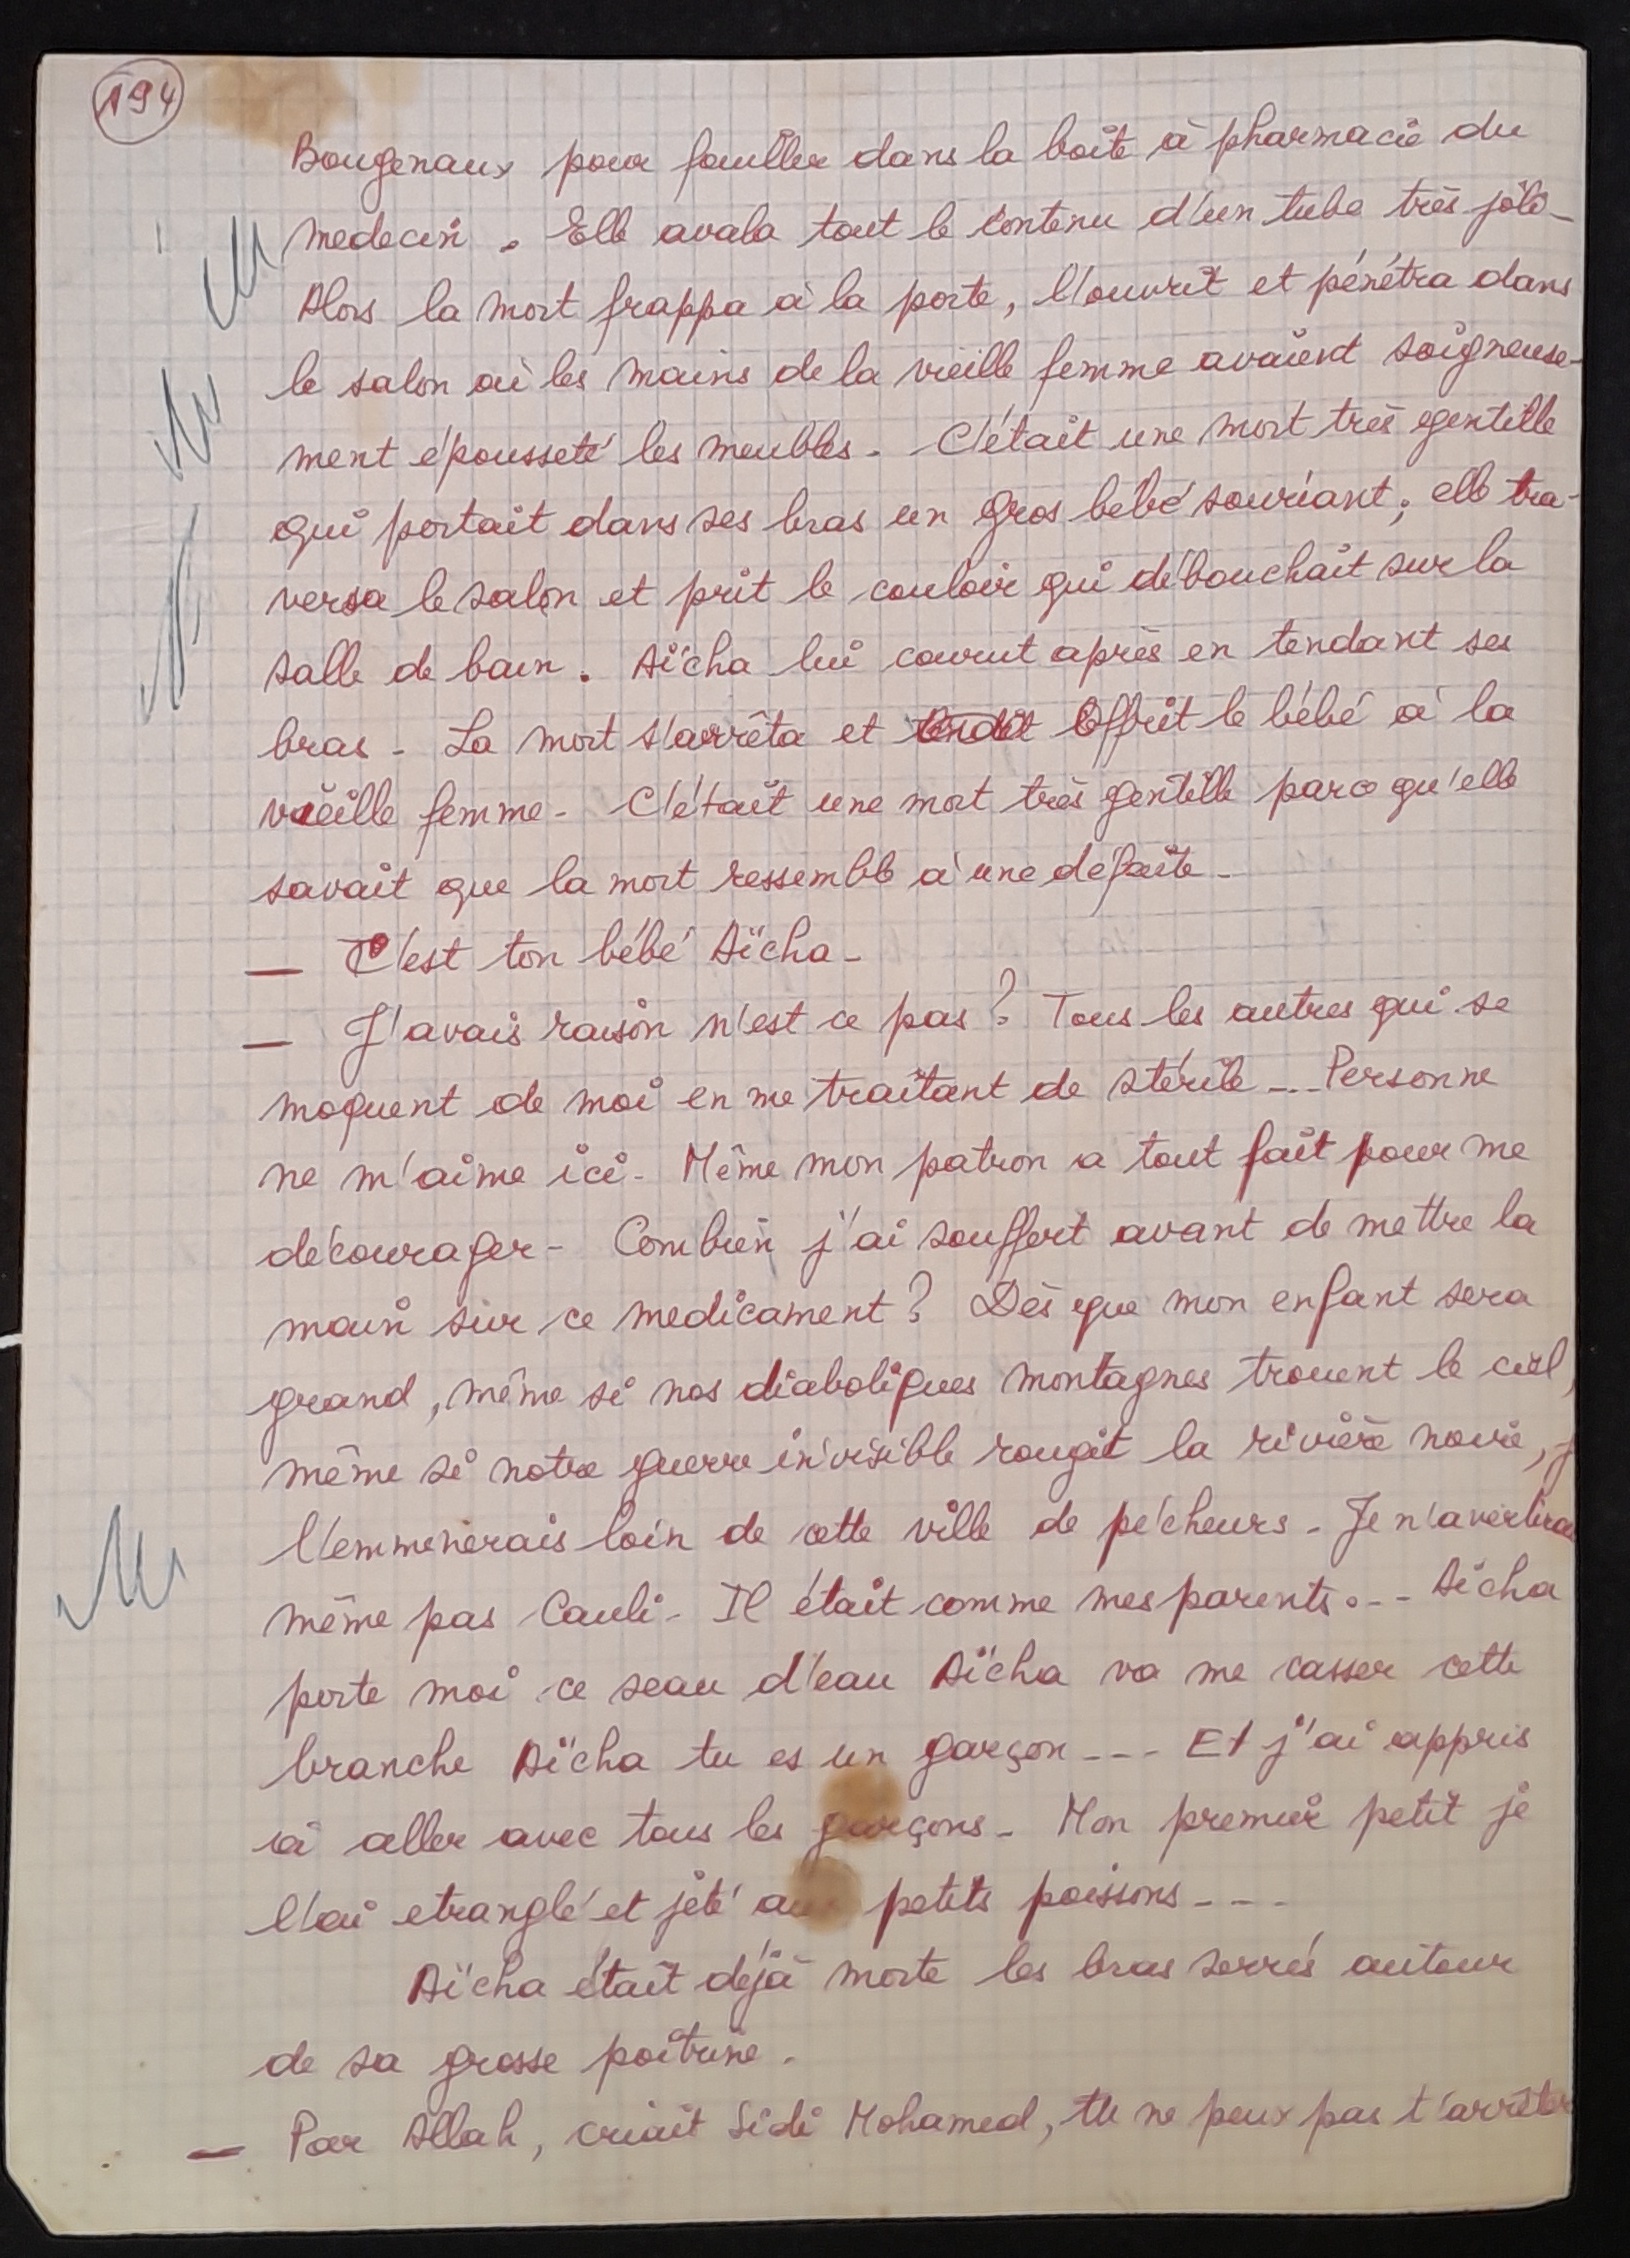 194
Bougenaux pour fouiller dans la boite à pharmacie du
medecin. Elle avala tout le contenu d'un tube très joli -
Alors la mort frappa à la porte, l'ouvrit et pénétra dans
le salon où les mains de la vieille femme avaient soigneuse-
ment épousseté les meubles. C'était une mort très gentille
qui portait dans ses bras un gros bébé souriant; elle tra-
versa le salon et prit le couloir qui débouchait sur la
salle de bain. Aïcha lui courut après en tendant ses
bras - La mort s'arrêta et tendit offrit le bébé à la
vieille femme - C'était une mort très gentille parce qu'elle
savait que la mort ressemble à une défaite -
— C'est ton bébé Aïcha -
— J'avais raison n'est ce pas ? Tous les autres qui se
moquent de moi en me traitant de stérile --- Personne
ne m'aime ici - Même mon patron a tout fait pour me
décourager - Combien j'ai souffert avant de mettre la
main sur ce medicament ? Dès que mon enfant sera
grand, même si nos diaboliques montagnes trouent le ciel,
même si notre guerre invisible rougit la rivière noire,
l'emmenerais loin de cette ville de pécheurs - Je n'avertirai
même pas Cauli - Il était comme mes parents --- Aïcha
porte moi ce seau d'eau Aïcha va me casser cette
branche Aïcha tu es un garçon --- Et j'ai appris
à aller avec tous les garçons - Mon premier petit je
l'ai etranglé et jeté aux petits poissons ---
Aïcha était déjà morte les bras serrés autour
de sa grosse poitrine.
— Par Allah, criait Sidi Mohamed, tu ne peux pas t'arrêter